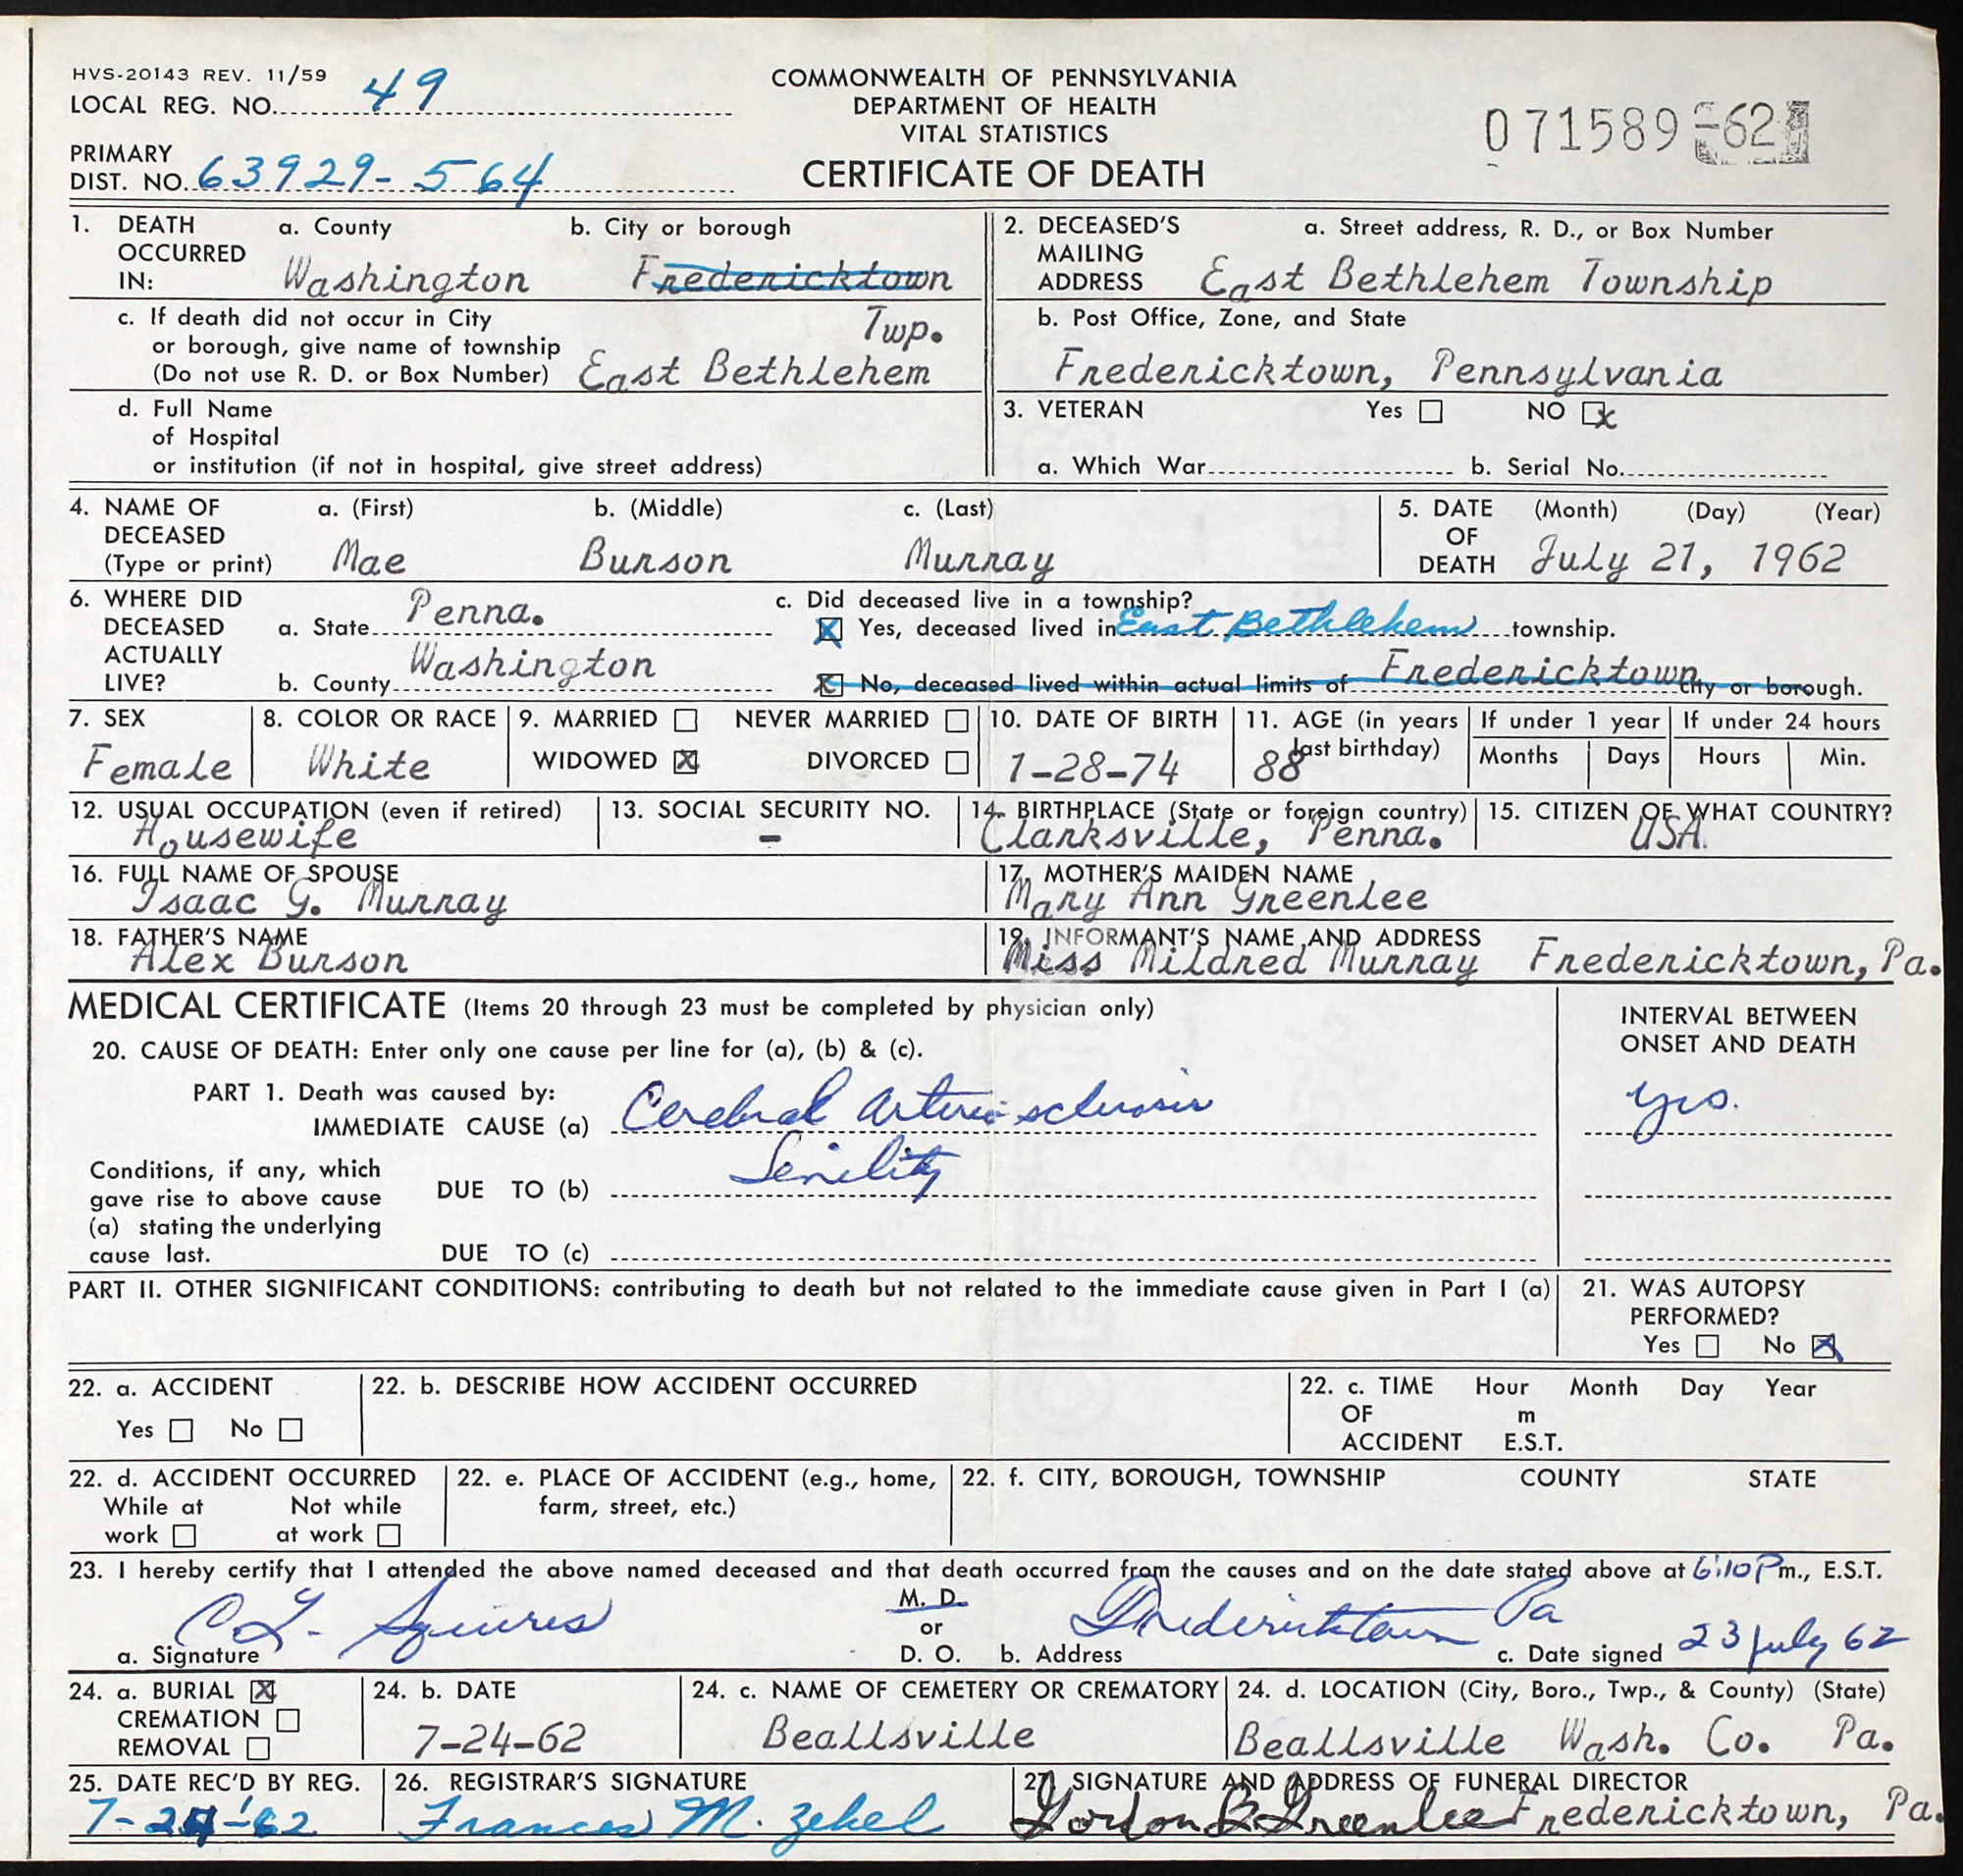 HVS-20143 REV. 11/59
LOCAL REG. NO. 49
COMMONWEALTH OF PENNSYLVANIA
DEPARTMENT OF HEALTH
VITAL STATISTICS
CERTIFICATE OF DEATH
071589-62
PRIMARY
DIST. NO. 63929-564
1. DEATH OCCURRED IN: a. County Washington
b. City or borough Fredericktown
c. If death did not occur in City
or borough, give name of township
(Do not use R. D. or Box Number) East Bethlehem Twp.
d. Full Name
of Hospital
or institution (if not in hospital, give street address)
2. DECEASED'S MAILING ADDRESS
a. Street address, R. D., or Box Number
East Bethlehem Township
b. Post Office, Zone, and State
Fredericktown, Pennsylvania
3. VETERAN Yes NO x
a. Which War b. Serial No.
4. NAME OF DECEASED (Type or print)
a. (First) b. (Middle) c. (Last)
Mae Burson Murray
5. DATE OF DEATH (Month) (Day) (Year)
July 21, 1962
6. WHERE DID DECEASED ACTUALLY LIVE?
a. State Penna.
b. County Washington
c. Did deceased live in a township?
X Yes, deceased lived in East Bethlehem township.
x No, deceased lived within actual limits of Fredericktown city or borough.
7. SEX Female
8. COLOR OR RACE White
9. MARRIED NEVER MARRIED
WIDOWED X DIVORCED
10. DATE OF BIRTH 1-28-74
11. AGE (in years last birthday) 88
If under 1 year Months Days
If under 24 hours Hours Min.
12. USUAL OCCUPATION (even if retired) Housewife
13. SOCIAL SECURITY NO. -
14. BIRTHPLACE (State or foreign country) Clarksville, Penna.
15. CITIZEN OF WHAT COUNTRY? USA.
16. FULL NAME OF SPOUSE Isaac G. Murray
17. MOTHER'S MAIDEN NAME Mary Ann Greenlee
18. FATHER'S NAME Alex Burson
19. INFORMANT'S NAME AND ADDRESS Miss Mildred Murray Fredericktown, Pa.
MEDICAL CERTIFICATE (Items 20 through 23 must be completed by physician only)
INTERVAL BETWEEN
ONSET AND DEATH
20. CAUSE OF DEATH: Enter only one cause per line for (a), (b) & (c).
PART 1. Death was caused by:
IMMEDIATE CAUSE (a) Cerebral Arteriosclerosis yrs.
Conditions, if any, which
gave rise to above cause
(a) stating the underlying
cause last.
DUE TO (b) Senility
DUE TO (c)
PART II. OTHER SIGNIFICANT CONDITIONS: contributing to death but not related to the immediate cause given in Part I (a)
21. WAS AUTOPSY
PERFORMED?
Yes No X
22. a. ACCIDENT
Yes No
22. b. DESCRIBE HOW ACCIDENT OCCURRED
22. c. TIME OF ACCIDENT Hour Month Day Year
m
E.S.T.
22. d. ACCIDENT OCCURRED
While at work Not while at work
22. e. PLACE OF ACCIDENT (e.g., home,
farm, street, etc.)
22. f. CITY, BOROUGH, TOWNSHIP COUNTY STATE
23. I hereby certify that I attended the above named deceased and that death occurred from the causes and on the date stated above at 6:10 Pm., E.S.T.
a. Signature C L. Squires
M. D.
or
D. O.
b. Address Fredericktown Pa
c. Date signed 23 July 62
24. a. BURIAL X
CREMATION
REMOVAL
24. b. DATE 7-24-62
24. c. NAME OF CEMETERY OR CREMATORY Beallsville
24. d. LOCATION (City, Boro., Twp., & County) (State)
Beallsville Wash. Co. Pa.
25. DATE REC'D BY REG. 7-24-'62
26. REGISTRAR'S SIGNATURE Frances M. Zekel
27. SIGNATURE AND ADDRESS OF FUNERAL DIRECTOR
Gordon B. Greenlee Fredericktown, Pa.